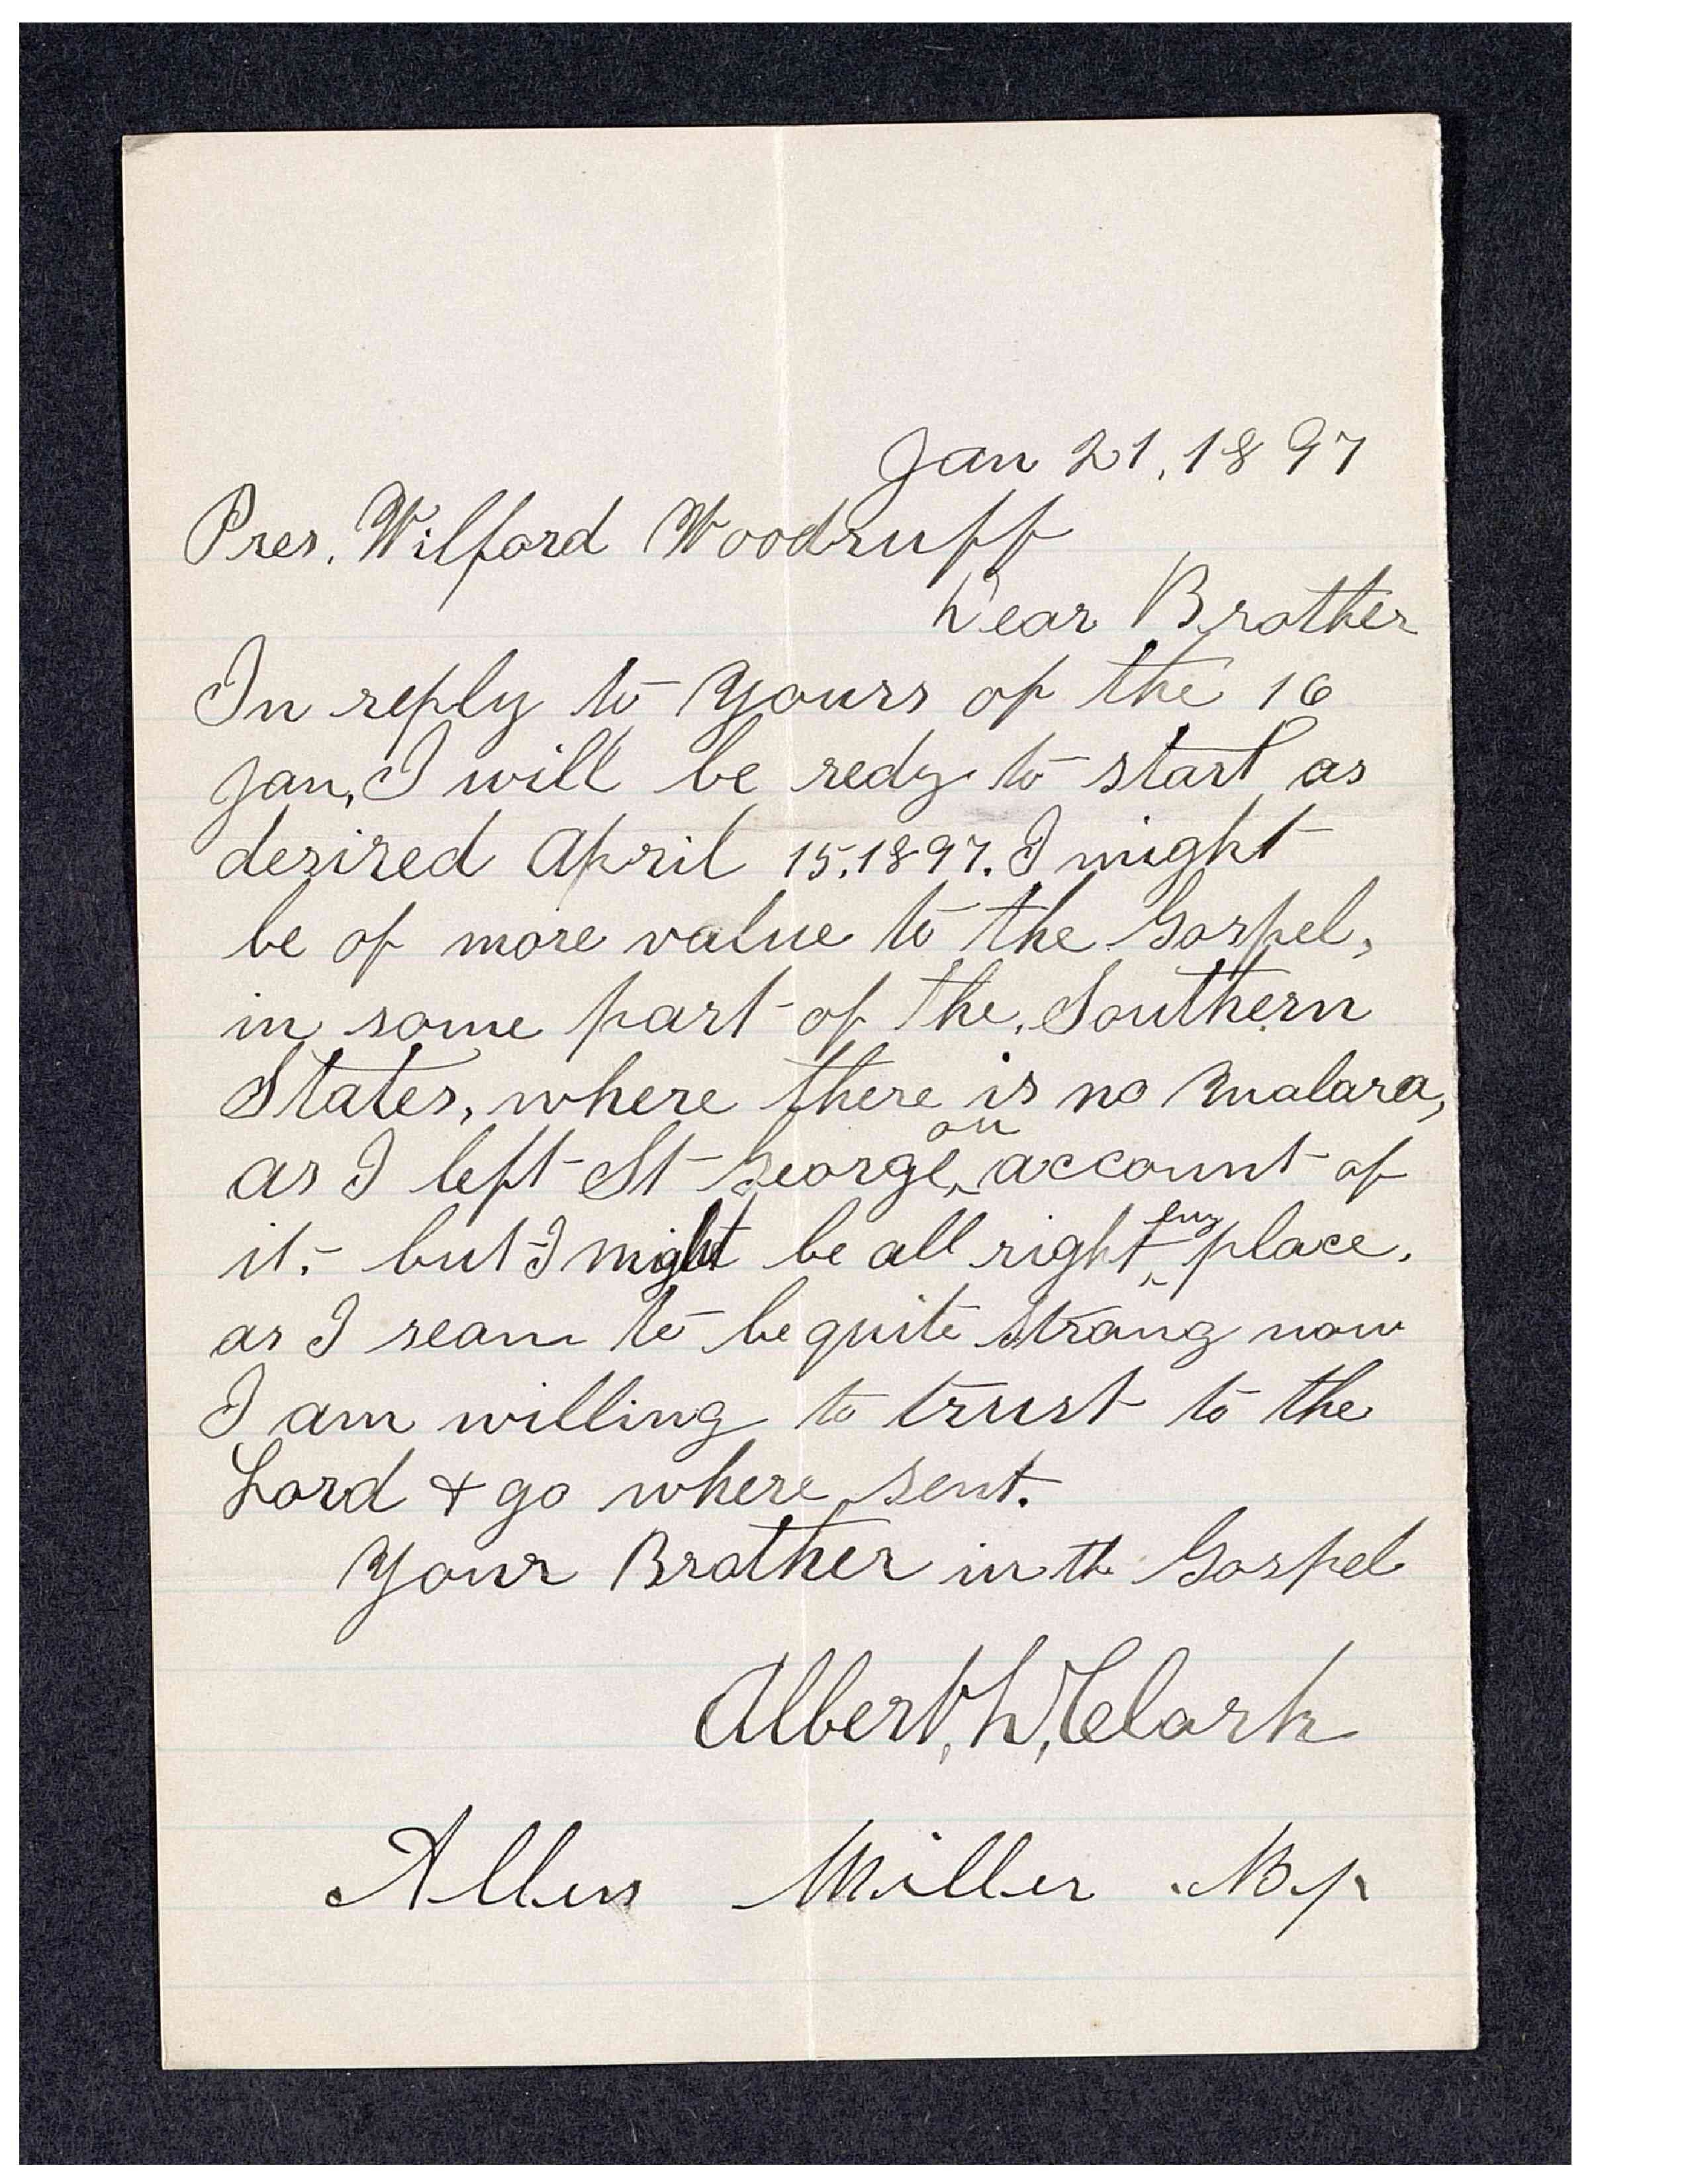 Jan 21, 1897
Pres. Wilford Woodruff
Dear Brother
In reply to yours of the 16
Jan, I will be redy to start as
desired April 15, 1897. I might
be of more value to the Gospel,
in some part of the, Southern
States, where there is no malara,
as I left St George, on account of
it. - but I might be all right eny place,
as I seam to be quite strong now
I am willing to trust to the
Lord & go where sent.
Your Brother in th Gospel
Albert, L, Clark
Allen Miller Bp